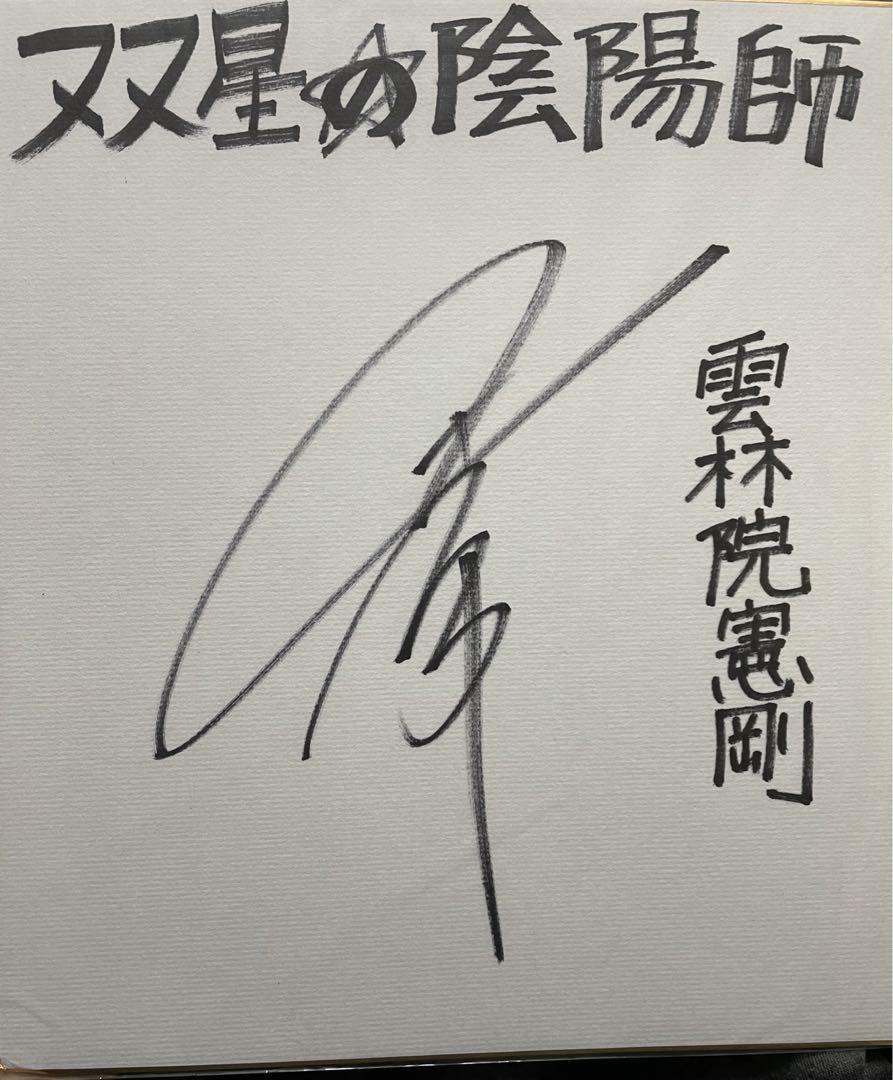 双星の陰陽師
雲林院憲剛